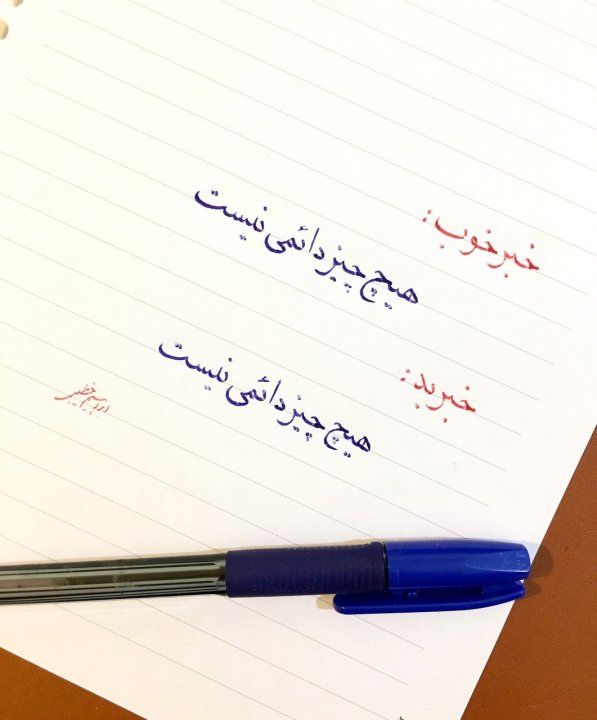 خبر خوب:
هیچ چیز دائمی نیست
خبر بد:
هیچ چیز دائمی نیست